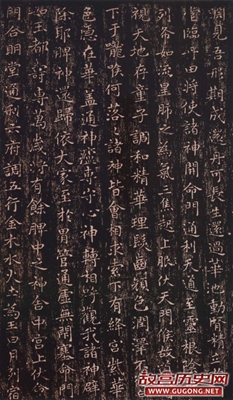 見吾形期成滌丹可長生還過華池動腎精立於明
堂臨丹田將使諸神開命門通利天道至靈根陰陽
列布如流星肺之為氣三焦起上服伏天門候故道闚
視天地存童子調和精華理髮齒顏色潤澤不復白
下于嚨喉何落落諸神皆會相求索下有絳宮紫華
色隱在華蓋通神廬專守心神轉相呼觀我諸神辟
除耶脾神還歸依大家至於胃管通虛無閉塞命門
如玉都壽專萬歲將有餘脾中之神舍中宮上伏命
門合明堂通利六府調五行金木水火土為王日月列宿
故宫历史网